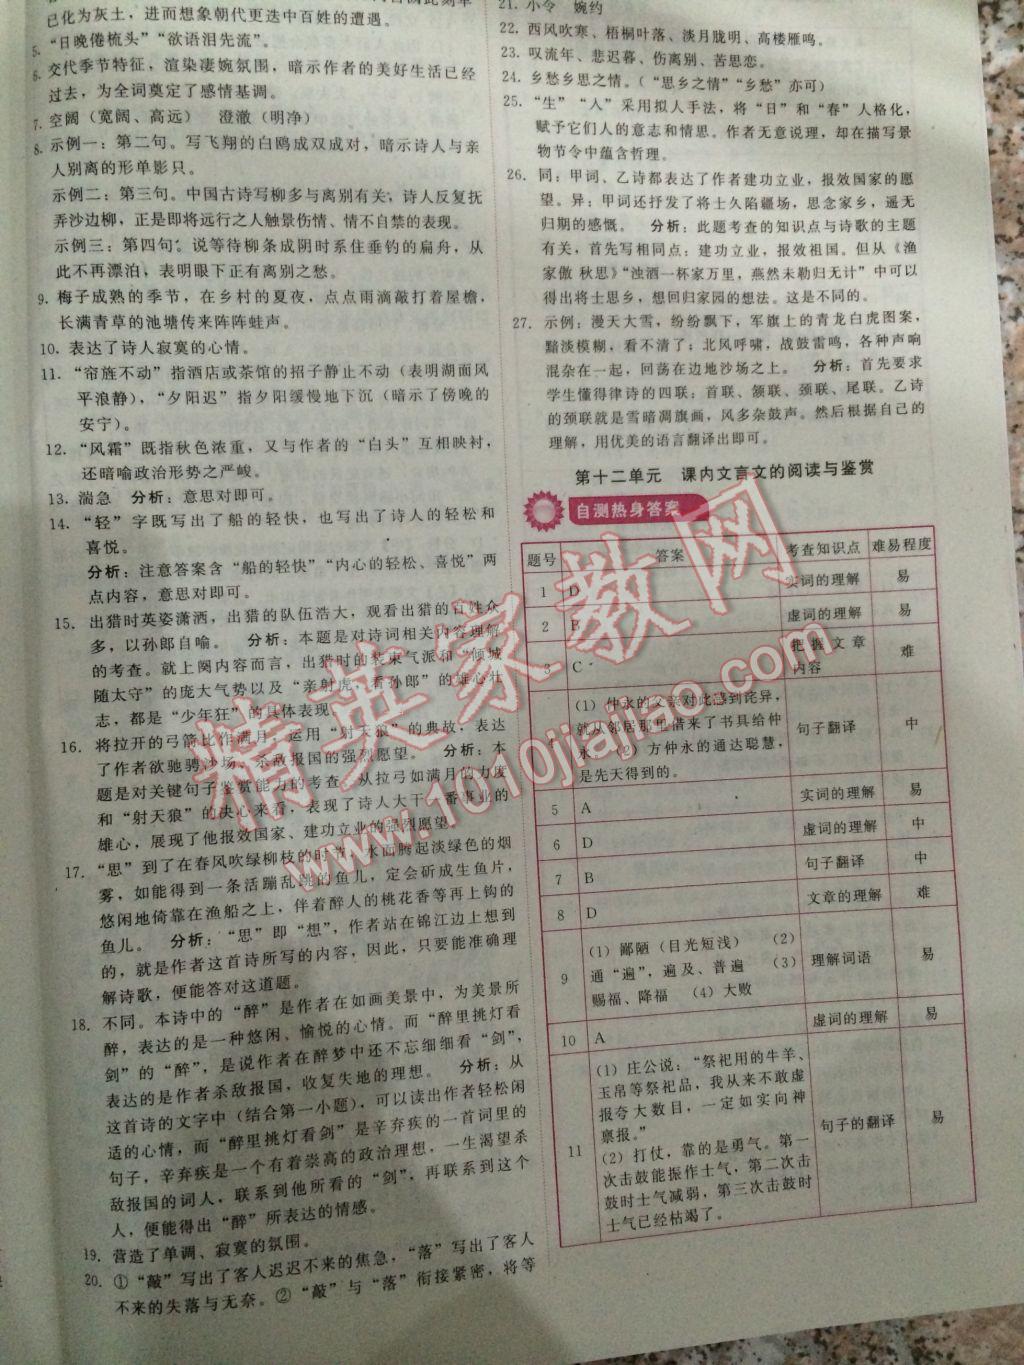 已化为灰土，进而想象朝代更迭中百姓的遭遇。
5. “日晚倦梳头”“欲语泪先流”。
6. 交代季节特征，渲染凄婉氛围，暗示作者的美好生活已经
过去，为全词奠定了感情基调。
7. 空阔（宽阔、高远）　澄澈（明净）
8. 示例一：第二句。写飞翔的白鸥成双成对，暗示诗人与亲
人别离的形单影只。
示例二：第三句。中国古诗写柳多与离别有关，诗人反复抚
弄沙边柳，正是即将远行之人触景伤情、情不自禁的表现。
示例三：第四句。说等待柳条成阴时系住垂钓的扁舟，从
此不再漂泊，表明眼下正有离别之愁。
9. 梅子成熟的季节，在乡村的夏夜，点点雨滴敲打着屋檐，
长满青草的池塘传来阵阵蛙声。
10. 表达了诗人寂寞的心情。
11. “帘旌不动”指酒店或茶馆的招子静止不动（表明湖面风
平浪静），“夕阳迟”指夕阳缓慢地下沉（暗示了傍晚的
安宁）。
12. “风霜”既指秋色浓重，又与作者的“白头”互相映衬，
还暗喻政治形势之严峻。
13. 湍急　分析：意思对即可。
14. “轻”字既写出了船的轻快，也写出了诗人的轻松和
喜悦。
分析：注意答案含“船的轻快”“内心的轻松、喜悦”两
点内容，意思对即可。
15. 出猎时英姿潇洒，出猎的队伍浩大，观看出猎的百姓众
多，以孙郎自喻。　分析：本题是对诗词相关内容理解
的考查。就上阕内容而言，出猎时的装束气派和“倾城
随太守”的庞大气势以及“亲射虎，看孙郎”的雄心壮
志，都是“少年狂”的具体表现。
16. 将拉开的弓箭比作满月，运用“射天狼”的典故，表达
了作者欲驰骋沙场、杀敌报国的强烈愿望。　分析：本
题是对关键句子鉴赏能力的考查。从拉弓如满月的力度
和“射天狼”的决心来看，表现了诗人大干一番事业的
雄心，展现了他报效国家、建功立业的强烈愿望。
17. “思”到了在春风吹绿柳枝的时节，水面腾起淡绿色的烟
雾，如能得到一条活蹦乱跳的鱼儿，定会斫成生鱼片，
悠闲地倚靠在渔船之上，伴着醉人的桃花香等再上钩的
鱼儿。　分析：“思”即“想”，作者站在锦江边上想到
的，就是作者这首诗所写的内容，因此，只要能准确理
解诗歌，便能答对这道题。
18. 不同。本诗中的“醉”是作者在如画美景中，为美景所
醉，表达的是一种悠闲、愉悦的心情。而“醉里挑灯看
剑”的“醉”，是说作者在醉梦中还不忘细细看“剑”，
表达的是作者杀敌报国，收复失地的理想。　分析：从
这首诗的文字中（结合第一小题），可以读出作者轻松闲
适的心情，而“醉里挑灯看剑”是辛弃疾的一首词里的
句子，辛弃疾是一个有着崇高的政治理想，一生渴望杀
敌报国的词人，联系到他所看的“剑”，再联系到这个
人，便能得出“醉”所表达的情感。
19. 营造了单调、寂寞的氛围。
20. ①“敲”写出了客人迟迟不来的焦急，“落”写出了客人
不来的失落与无奈。②“敲”与“落”衔接紧密，将等
21. 小令　婉约
22. 西风吹寒、梧桐叶落、淡月胧明、高楼雁鸣。
23. 叹流年、悲迟暮、伤离别、苦思恋。
24. 乡愁乡思之情。（“思乡之情”“乡愁”亦可）
25. “生”“人”采用拟人手法，将“日”和“春”人格化，
赋予它们人的意志和情思。作者无意说理，却在描写景
物节令中蕴含哲理。
26. 同：甲词、乙诗都表达了作者建功立业，报效国家的愿
望。异：甲词还抒发了将士久陷疆场，思念家乡，遥无
归期的感慨。　分析：此题考查的知识点与诗歌的主题
有关，首先写相同点：建功立业，报效祖国。但从《渔
家傲 秋思》“浊酒一杯家万里，燕然未勒归无计”中可以
得出将士思乡，想回归家园的想法。这是不同的。
27. 示例：漫天大雪，纷纷飘下，军旗上的青龙白虎图案，
黯淡模糊，看不清了；北风呼啸，战鼓雷鸣，各种声响
混杂在一起，回荡在边地沙场之上。　分析：首先要求
学生懂得律诗的四联：首联、颔联、颈联、尾联。乙诗
的颈联就是雪暗凋旗画，风多杂鼓声。然后根据自己的
理解，用优美的语言翻译出即可。
第十二单元　课内文言文的阅读与鉴赏
自测热身答案
题号　答案　考查知识点　难易程度
1　D　实词的理解　易
2　B　虚词的理解　易
3　C　把握文章内容　难
4　（1）仲永的父亲对此感到诧异，
就从邻居那里借来了书具给仲
永。（2）方仲永的通达聪慧，
是先天得到的。　句子翻译　中
5　A　实词的理解　易
6　D　虚词的理解　中
7　B　句子翻译　中
8　D　文章的理解　难
9　（1）鄙陋（目光短浅）　（2）
通“遍”，遍及、普遍　（3）
赐福、降福　（4）大败　理解词语　易
10　A　虚词的理解　易
11　（1）庄公说：“祭祀用的牛羊、
玉帛等祭祀品，我从来不敢虚
报夸大数目，一定如实向神
禀报。”
（2）打仗，靠的是勇气。第一
次击鼓能振作士气，第二次击
鼓时士气减弱，第三次击鼓时
士气已经枯竭了。　句子的翻译　易
精英家教网
www.1010jiajiao.com